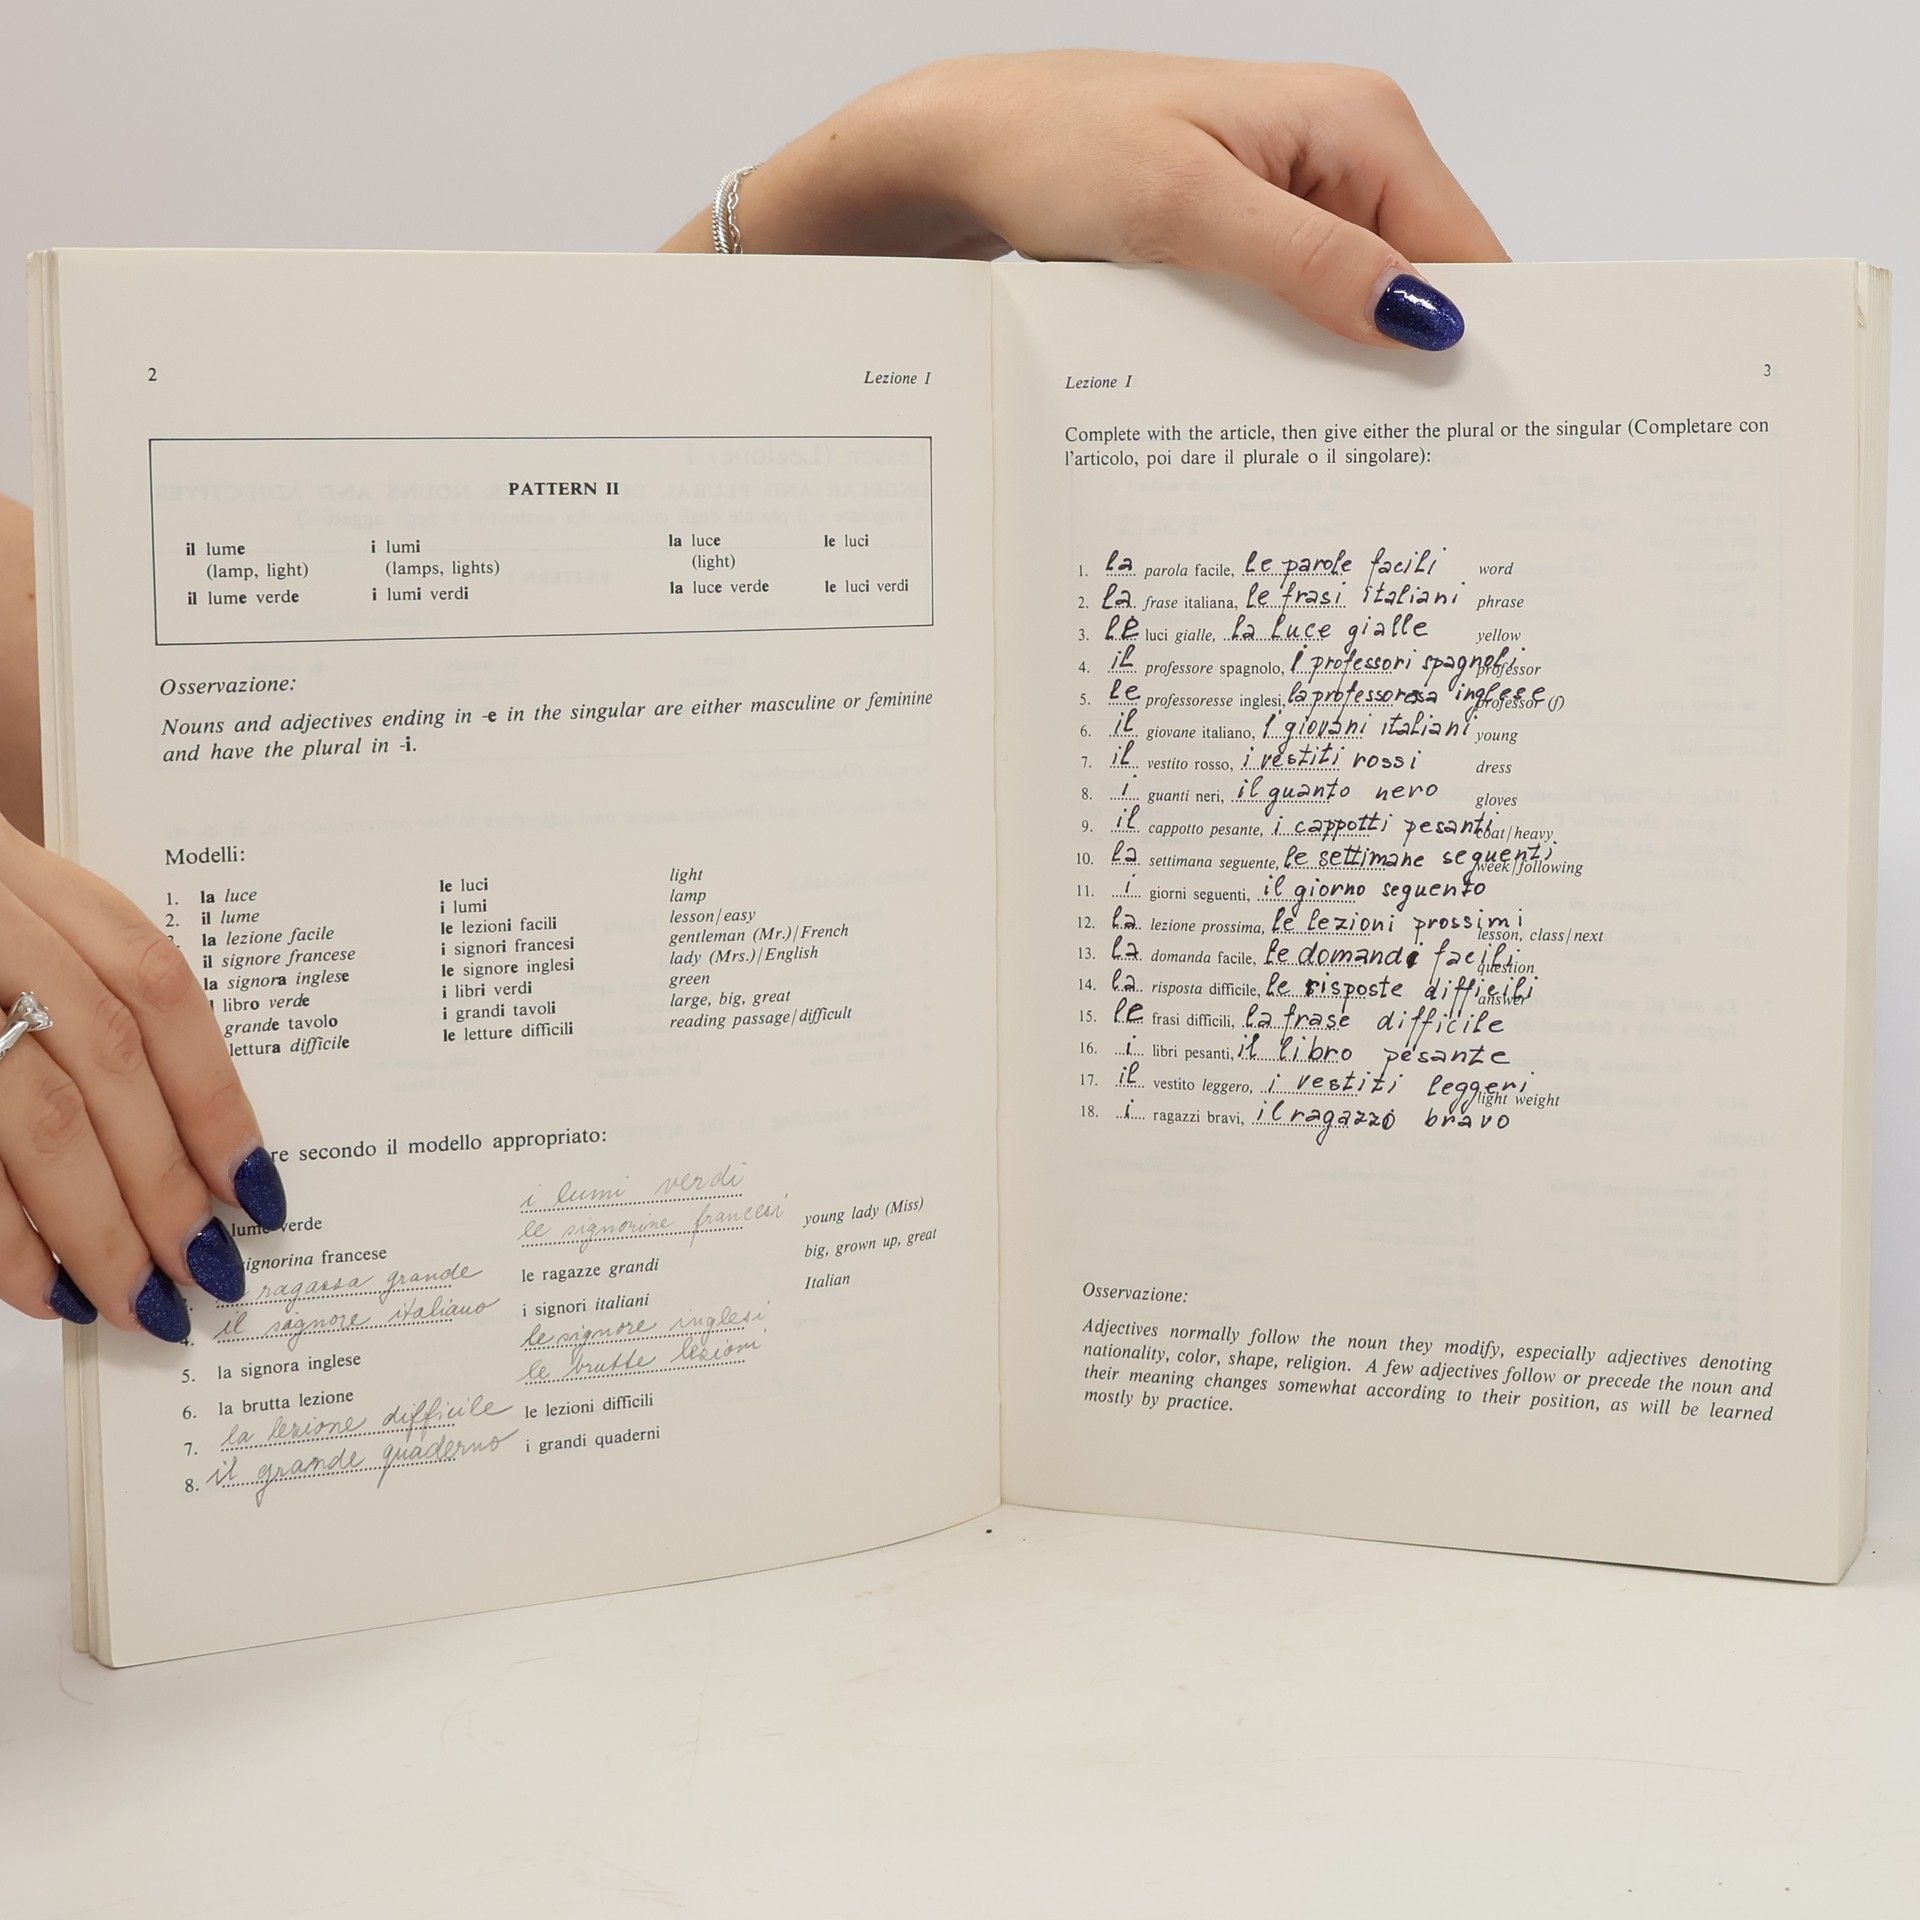 2 Lezione I
PATTERN II
il lume i lumi la luce le luci
(lamp, light) (lamps, lights) (light)
il lume verde i lumi verdi la luce verde le luci verdi
Osservazione:
Nouns and adjectives ending in -e in the singular are either masculine or feminine
and have the plural in -i.
Modelli:
1. la luce le luci light
2. il lume i lumi lamp
la lezione facile le lezioni facili lesson/easy
il signore francese i signori francesi gentleman (Mr.)/French
la signora inglese le signore inglesi lady (Mrs.)/English
libro verde i libri verdi green
grande tavolo i grandi tavoli large, big, great
lettura difficile le letture difficili reading passage/difficult
secondo il modello appropriato:
lume verde i lumi verdi
signorina francese le signorine francesi young lady (Miss)
ragazza grande le ragazze grandi big, grown up, great
4. il signore italiano i signori italiani Italian
5. la signora inglese le signore inglesi
6. la brutta lezione le brutte lezioni
7. la lezione difficile le lezioni difficili
8. il grande quaderno i grandi quaderni
Lezione I 3
Complete with the article, then give either the plural or the singular (Completare con
l'articolo, poi dare il plurale o il singolare):
1. la parola facile, le parole facili word
2. la frase italiana, le frasi italiani phrase
3. le luci gialle, la luce gialle yellow
4. il professore spagnolo, i professori spagnoli professor
5. le professoresse inglesi, la professoressa inglese professor (f)
6. il giovane italiano, i giovani italiani young
7. il vestito rosso, i vestiti rossi dress
8. i guanti neri, il guanto nero gloves
9. il cappotto pesante, i cappotti pesanti coat/heavy
10. la settimana seguente, le settimane seguenti week/following
11. i giorni seguenti, il giorno seguento
12. la lezione prossima, le lezioni prossimi lesson, class/next
13. la domanda facile, le domandi facili question
14. la risposta difficile, le risposte difficili answer
15. le frasi difficili, la frase difficile
16. i libri pesanti, il libro pesante
17. il vestito leggero, i vestiti leggeri light weight
18. i ragazzi bravi, il ragazzo bravo
Osservazione:
Adjectives normally follow the noun they modify, especially adjectives denoting
nationality, color, shape, religion. A few adjectives follow or precede the noun and
their meaning changes somewhat according to their position, as will be learned
mostly by practice.